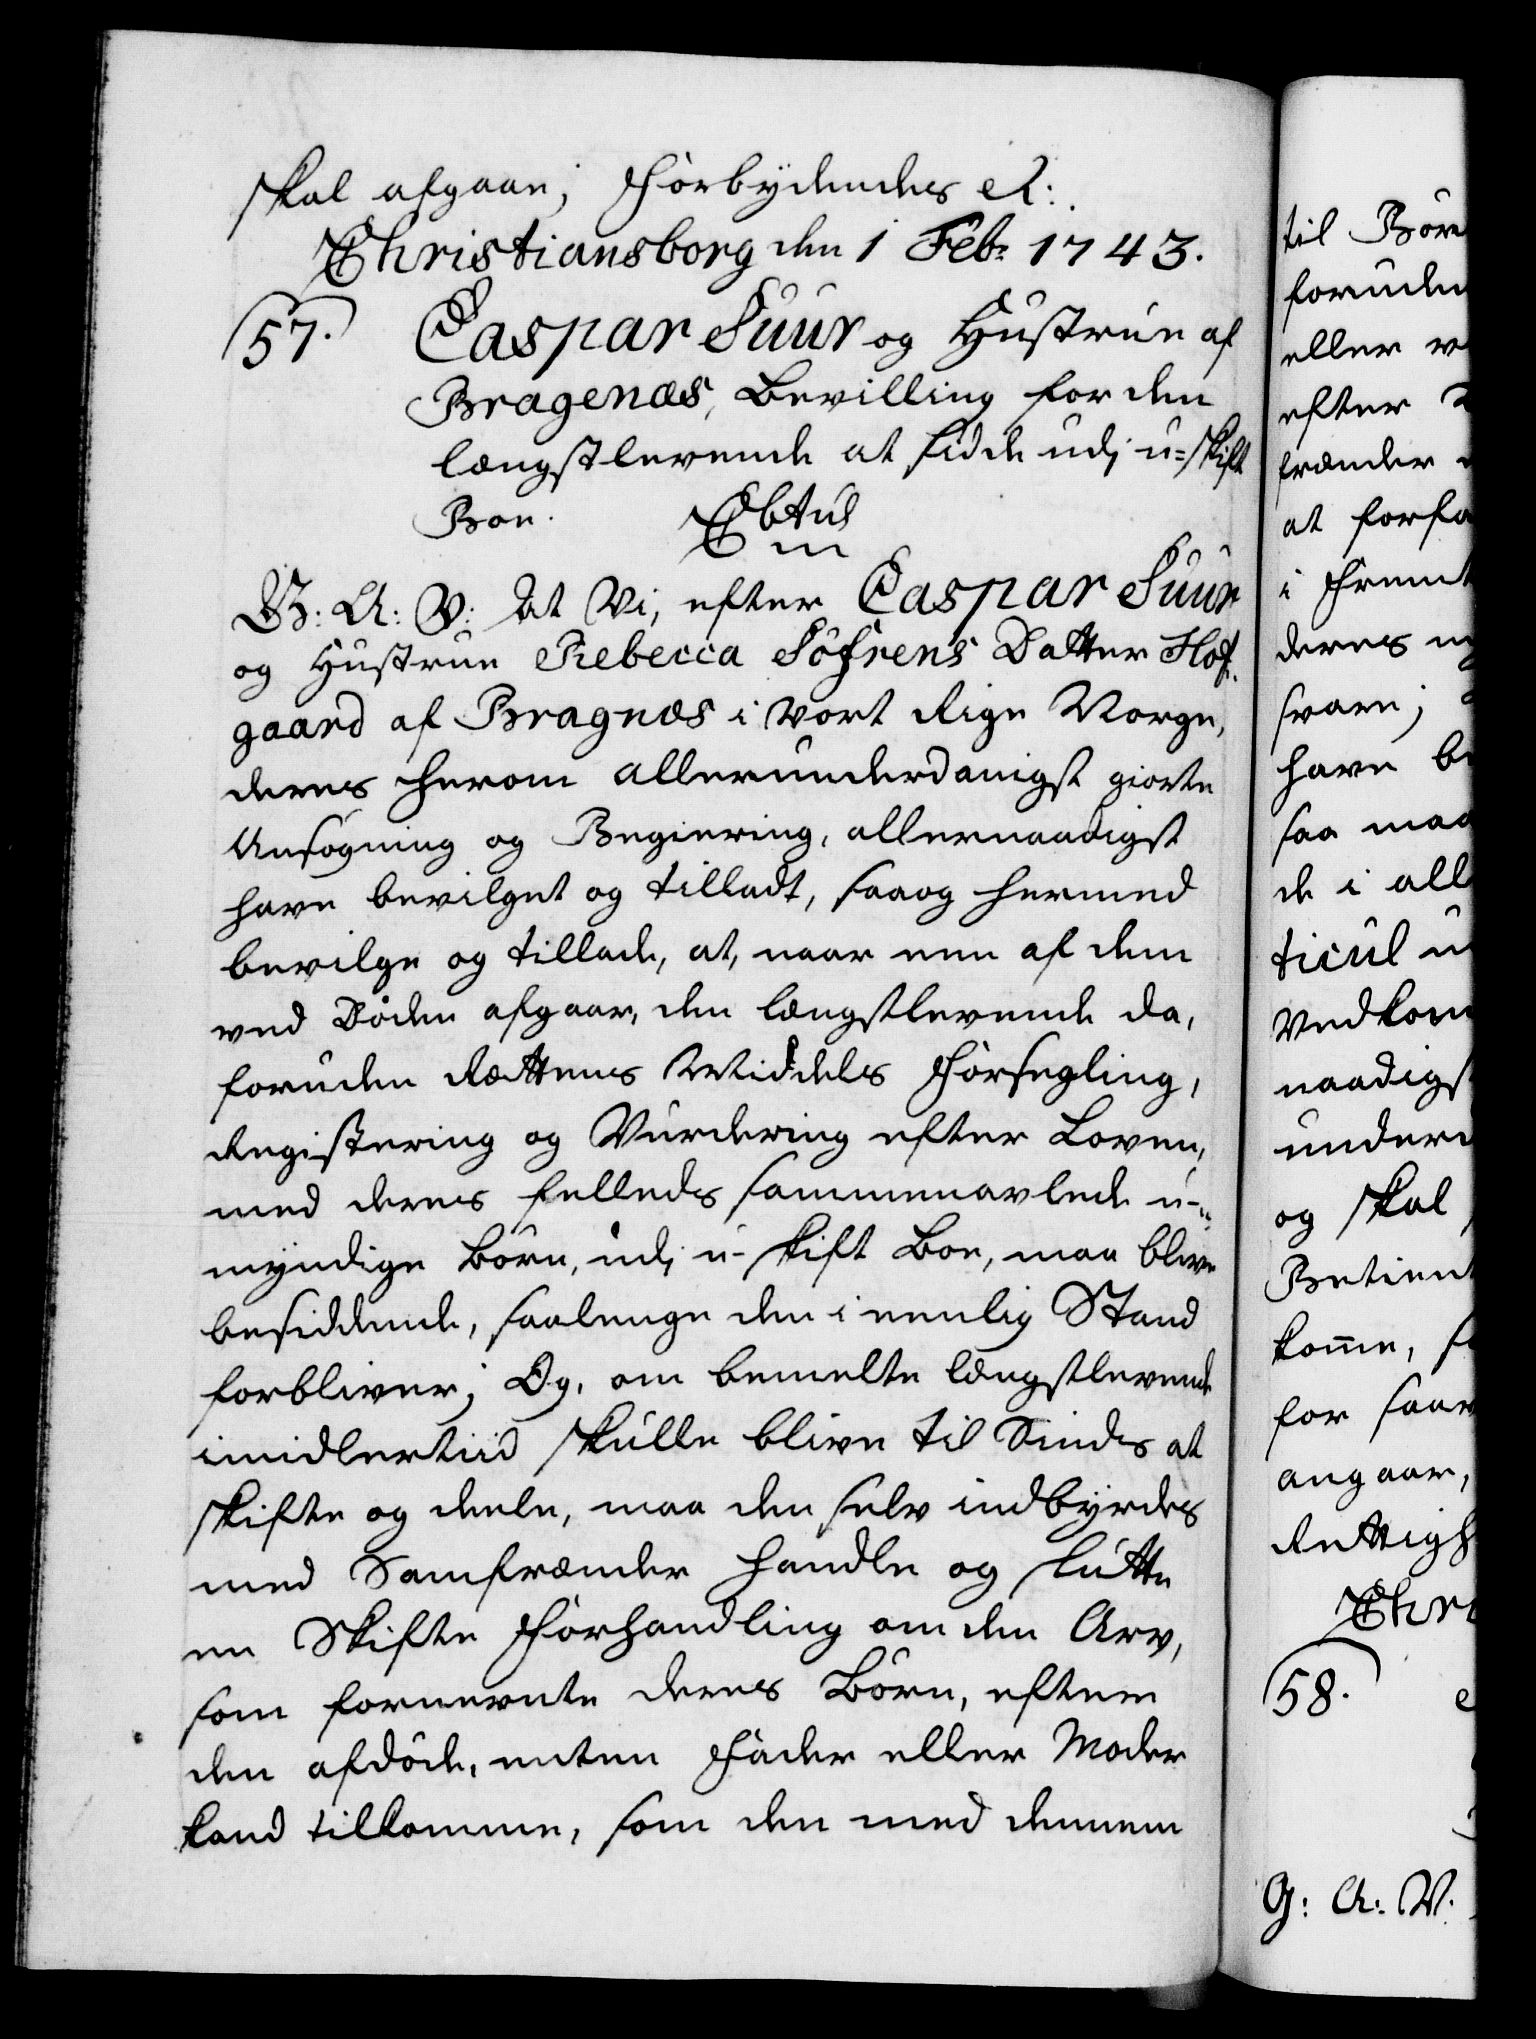 skal afgaae; Forbydendes etc:
Christiansborg den 1 Feb: 1743.
57. Caspar Suur og Hustrue af
Bragenæs, Bevilling for den
længstlevende at sidde udj u-skift
Boe.
G: A: V: At Vi, efter Caspar Suur
og Hustrue Rebecca Søfrens Datter Hof-
gaard af Bragnæs i vort Rige Norge,
deres herom allerunderdanigst giorte
Ansøgning og Begiering, allernaadigst
have bevilget og tilladt, saaog hermed
bevilge og tillade, at, naar een af dem
ved Døden afgaar, den længstlevende da,
foruden Rættens Middels Forsegling,
Registering og Vurdering efter Loven,
med deres felleds sammenavlede u-
myndige Børn, udj u-skift Boe, maa blive
besiddende, saalenge den i eenlig Stand
forbliver; Og, om bemelte længstlevende
imidlertiid skulle blive til Sinds at
skifte og deele, maa den selv indbyrdes
med Samfrænder handle og slutte
en Skifte Forhandling om den Arv,
som fornevnte deres Børn, efter
den afdøde, enten Fader eller Moder
kand tilkomme, som den med dennem
til Bør
foruden
eller
efter
frænder
at forfa
i Fremt
deres
svare;
have be
saa maa
de i all
ticul u
Vedkom
naadigs
under
og skal
Betient
komme,
for saav
angaar,
Rettigh
Chri
58.
G: A: V.